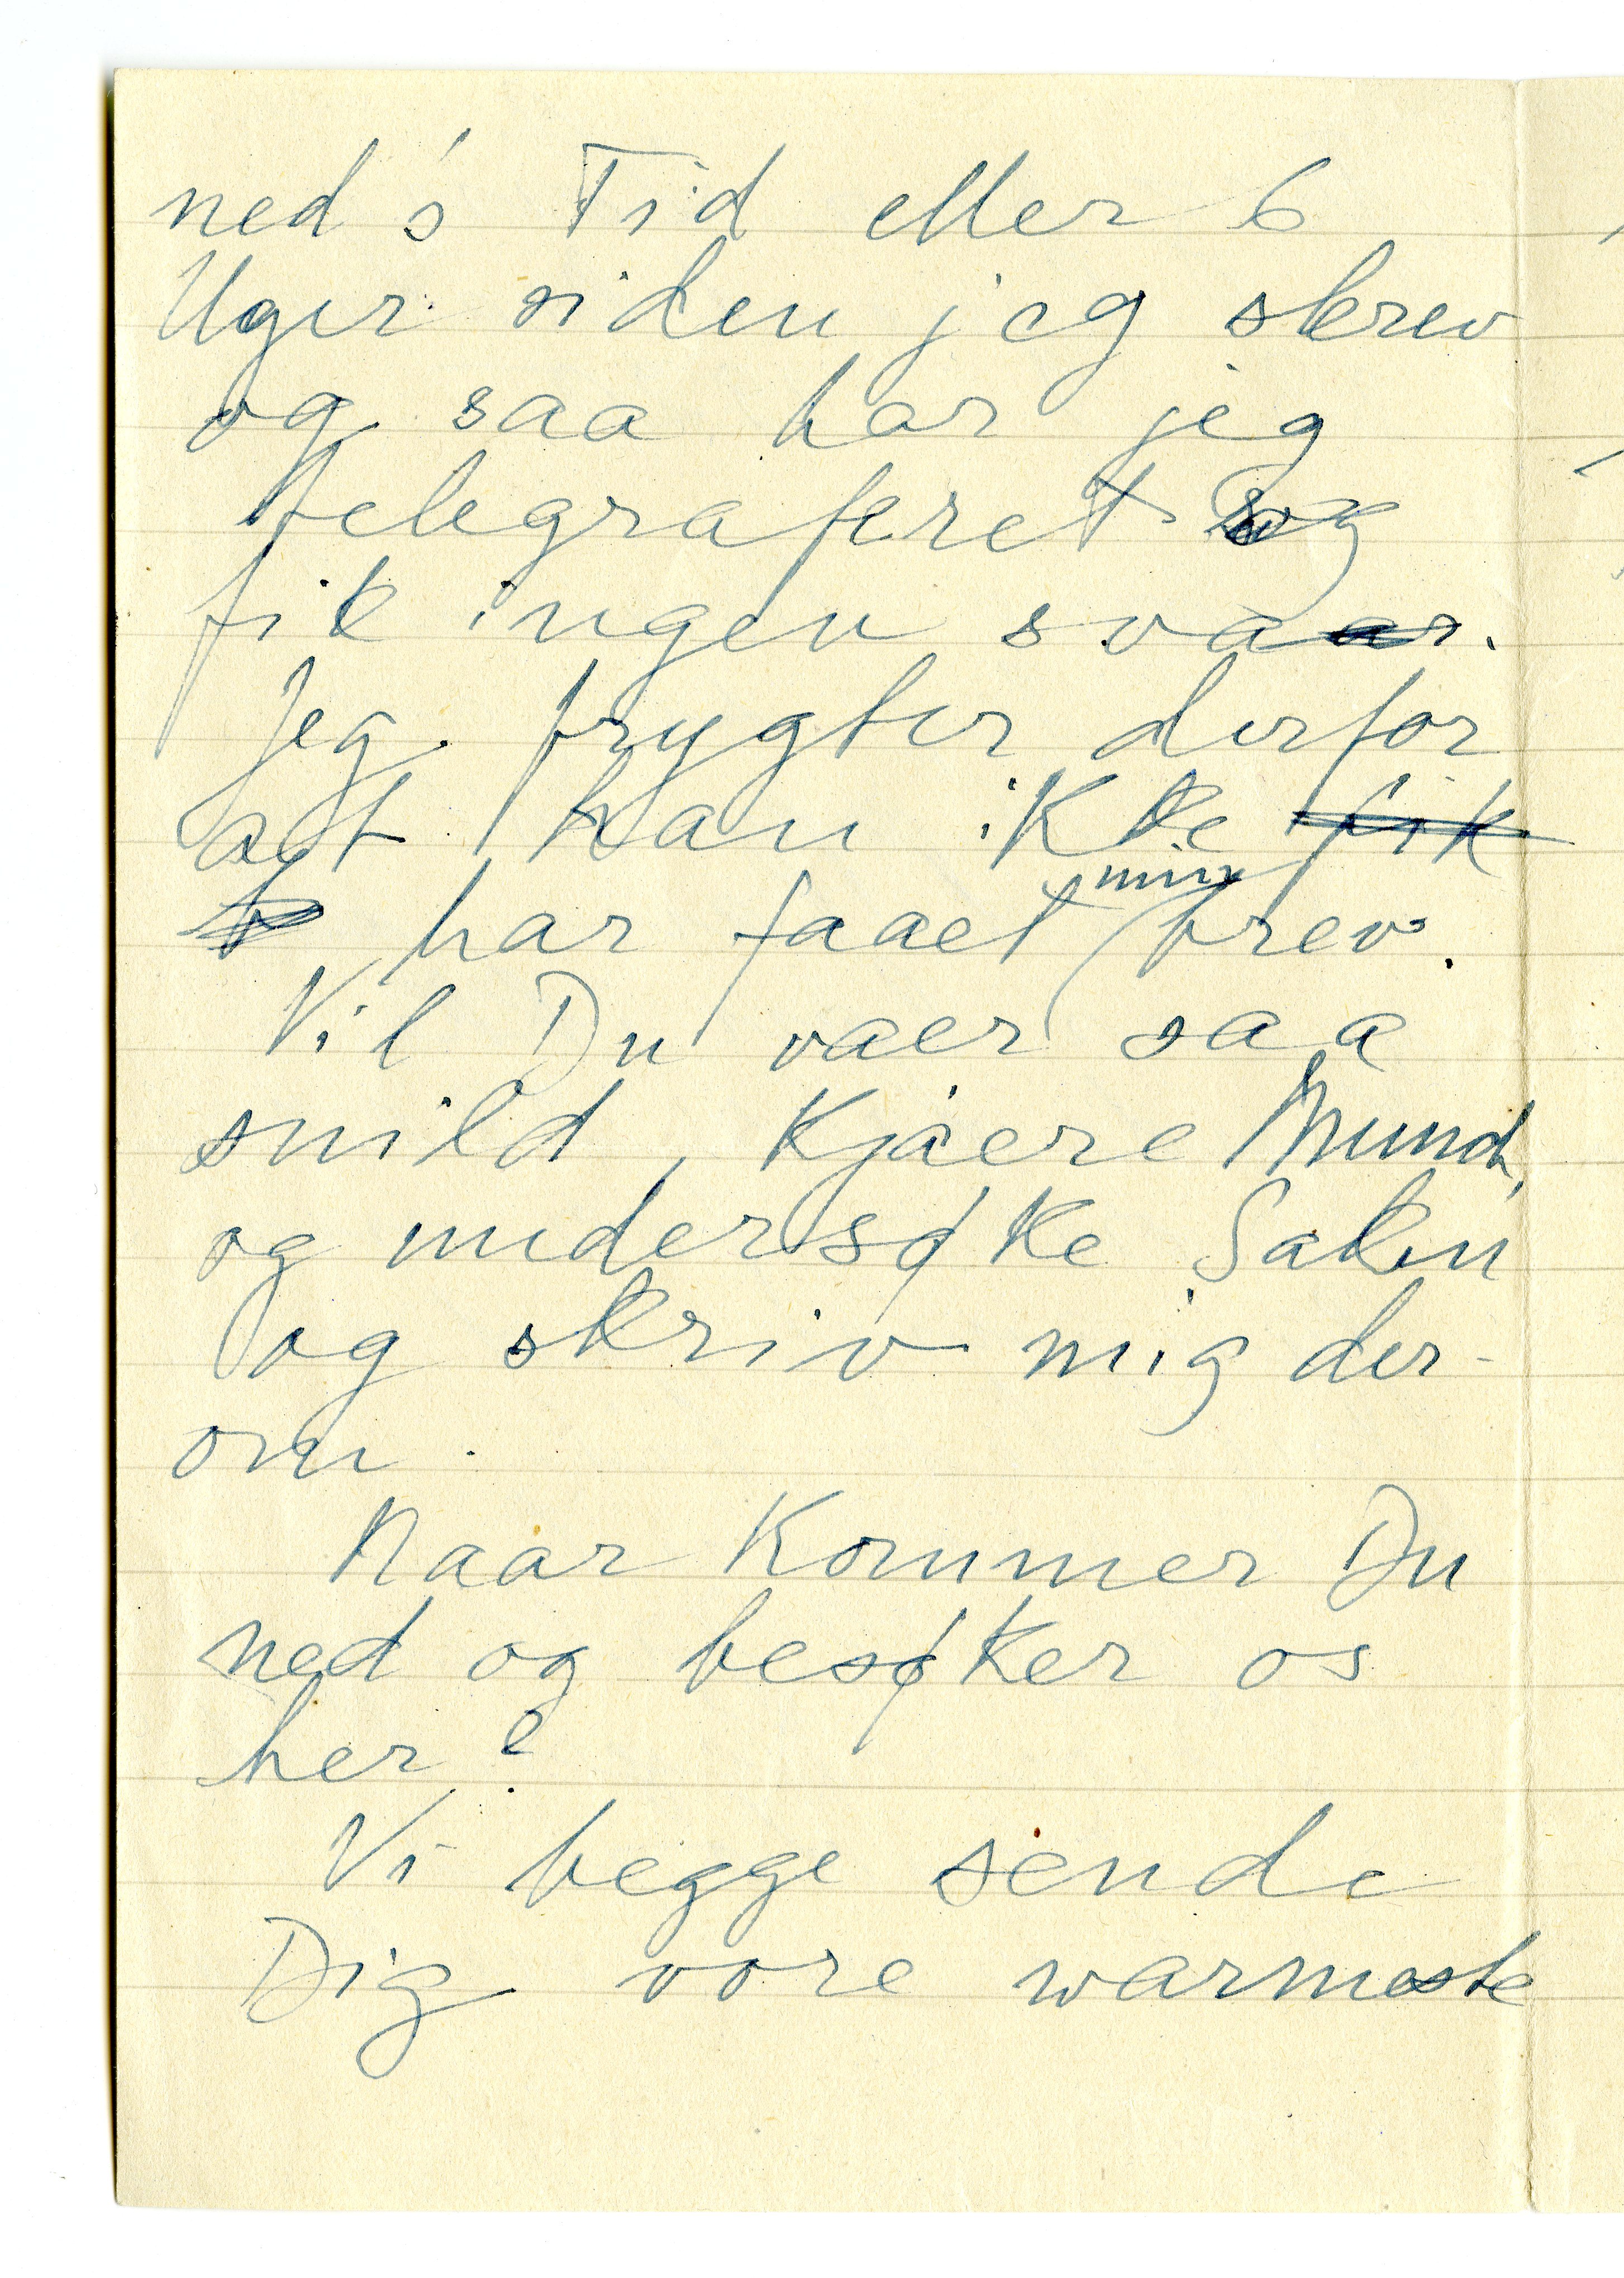 ned's Tid eller 6
Uger siden jeg skrev
og saa har jeg
telegraferet og
fik ingen svar.
Jeg frygter derfor
at han ikke fik
har faaet min brev.
Vil Du vaer saa
snild, Kjaere Munch,
og undersøke Saken
og skriv mig der-
om.
Naar Kommer Du
ned og besøker os
her?
Vi begge sende
Dig vore warmeste